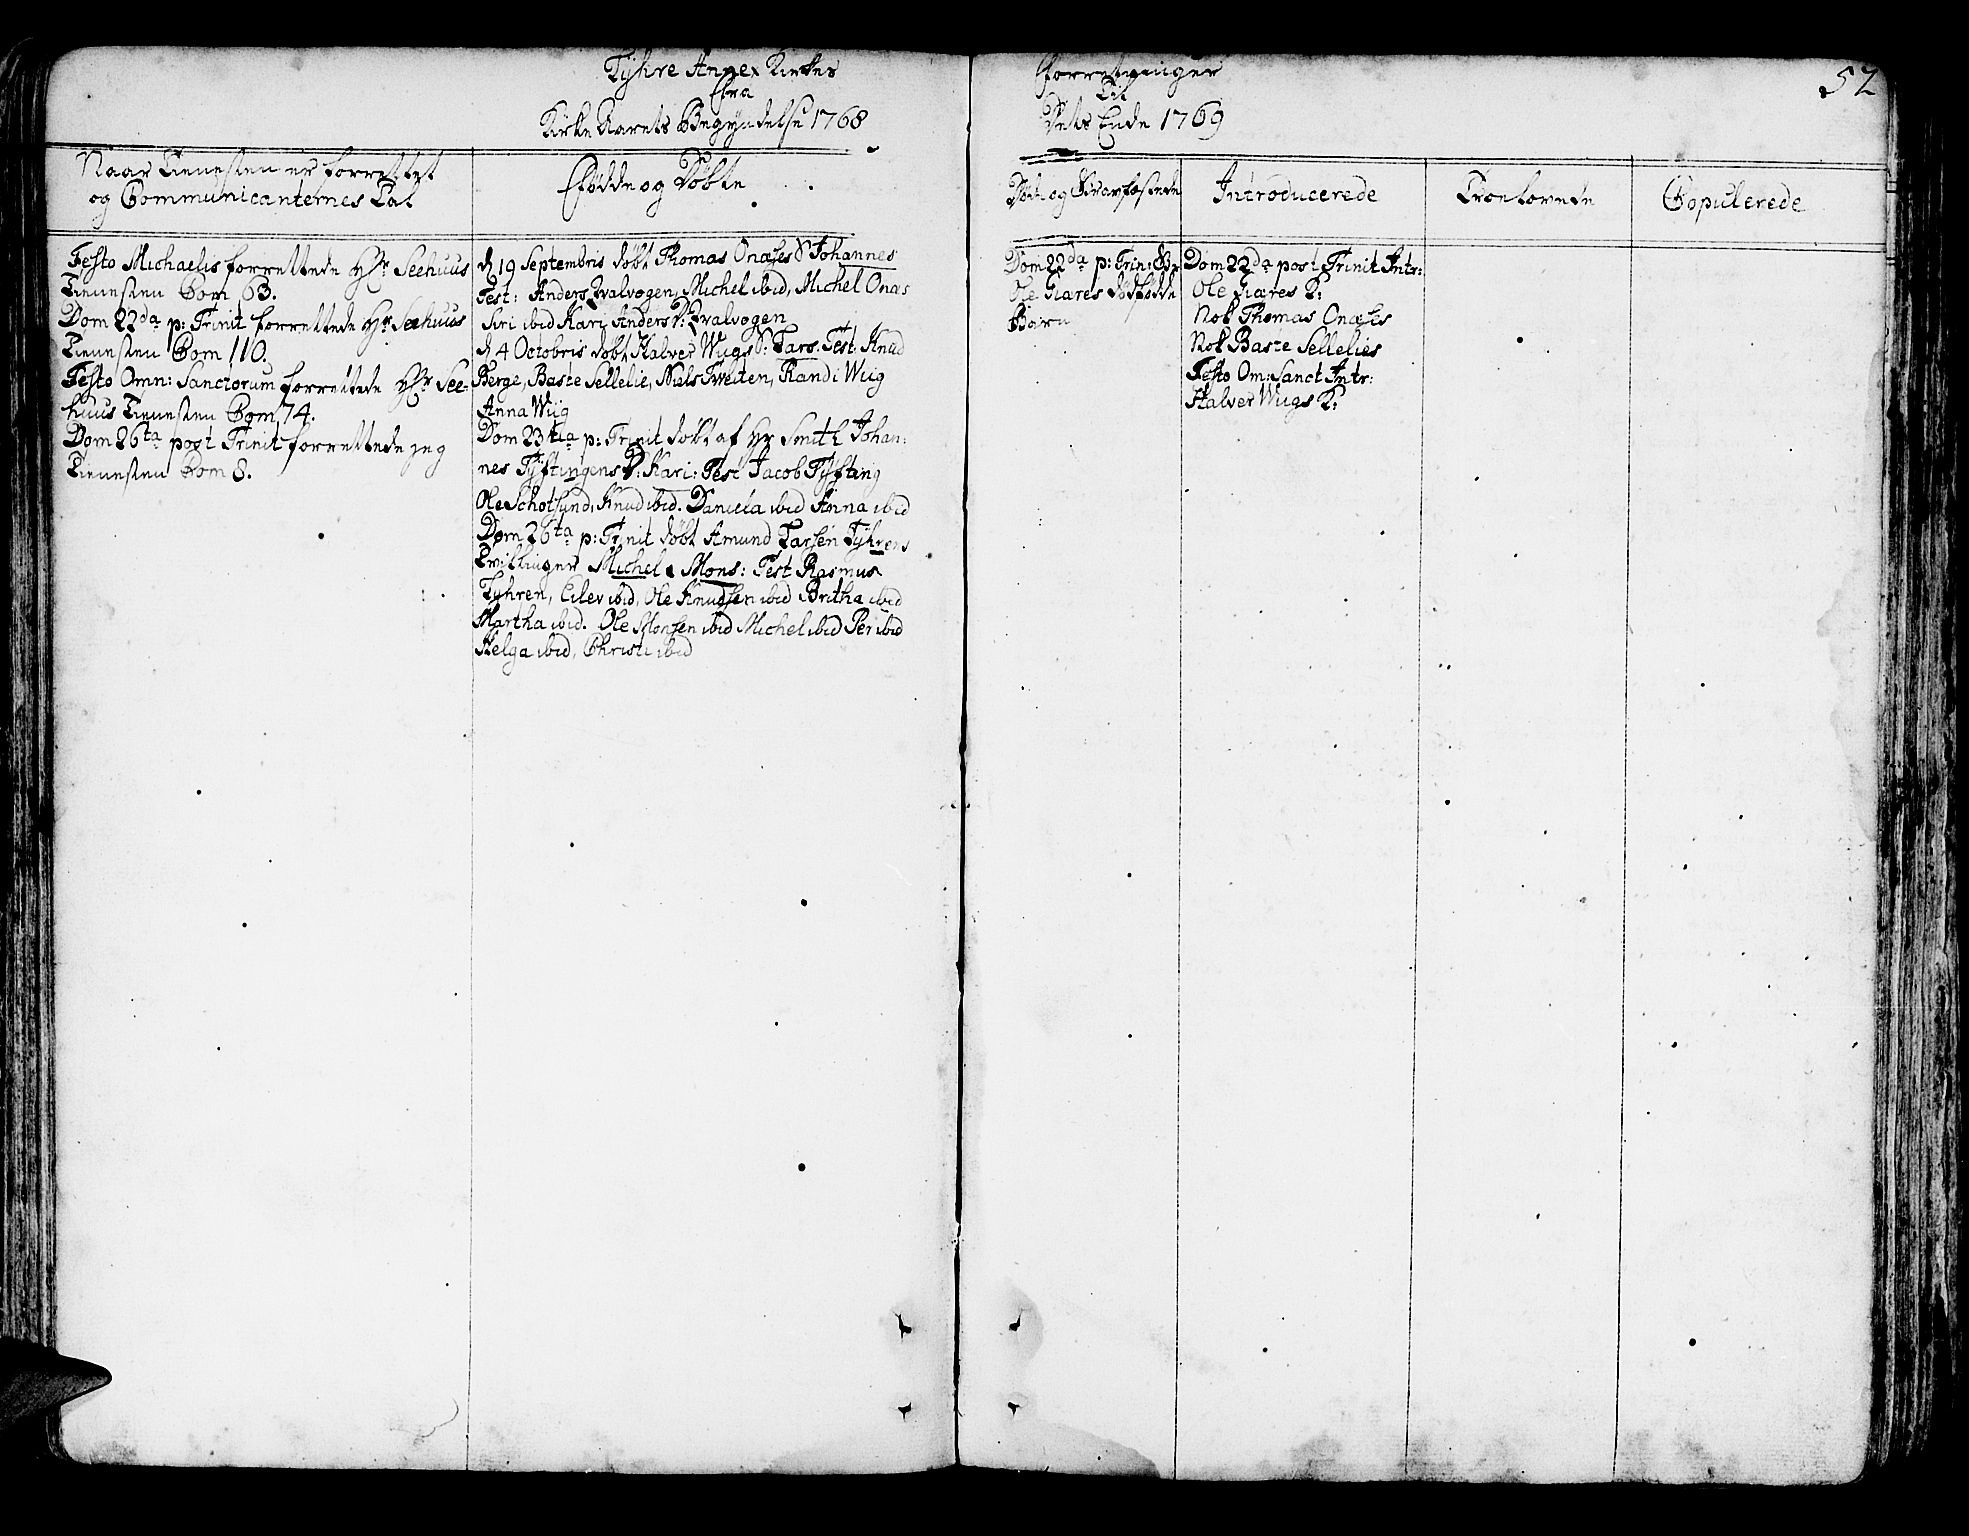 Tyhre Annex Kirkes
fra
Kirke Aarets Begyndelse 1768
Naar Tienesten er forrettet
og Communicanternes Tal
Fødde og Døbte
Festo Michaelis forrettede Hr. Seehuus
Tienesten Com 63.
Dom 22da p: Trinit forrettede Hr. Seehuus
Tienesten Com 110.
Festo Omn: Sanctorum forrettede Hr. See-
huus Tienesten Com 74.
Dom 26ta post Trinit forrettede jeg
Tienesten Com 8.
d 19 Septembris døbt Thomas Onæses S Johannes
Test: Anders Qvalvogen, Michel ibid, Michel Onæs
Siri ibid Kari Anders D: Qvalvogen
d 4 Octobris døbt Halver Wiigs S: Lars. Test: Knud
Berge, Baste Sellelie, Niels Tweiten, Randi Wiig
Anna Wiig
Dom 23tia p: Trinit døbt af Hr Smith Johan:
nes Tyftingens D: Kari: Test Jacob Tyfting
Ole Schotsund, Knud ibid. Daniela ibid Anna ibid
Dom 26ta p: Trinit døbt Amund Larsen Tyhrens
Tvillinger Michel & Mons: Test Rasmus
Tyhren, Eilev ibid, Ole Knudsen ibid Britha ibid
Martha ibid. Ole Monsen ibid Michel ibid Per ibid
Helga ibid, Christi ibid
forretninger
Til
Dets Ende 1769
52
Døde og Jordfæstede
Introducerede
Troelovede
Copulerede
Dom 22da p: Trin:
Ole Giæres dødfødde
Barn
Dom 22da post Trinit Intr:
Ole Giæres K:
Nok Thomas Onæses
Nok Baste Sellelies
Festo Om: Sanct Intr:
Halver Wiigs K: